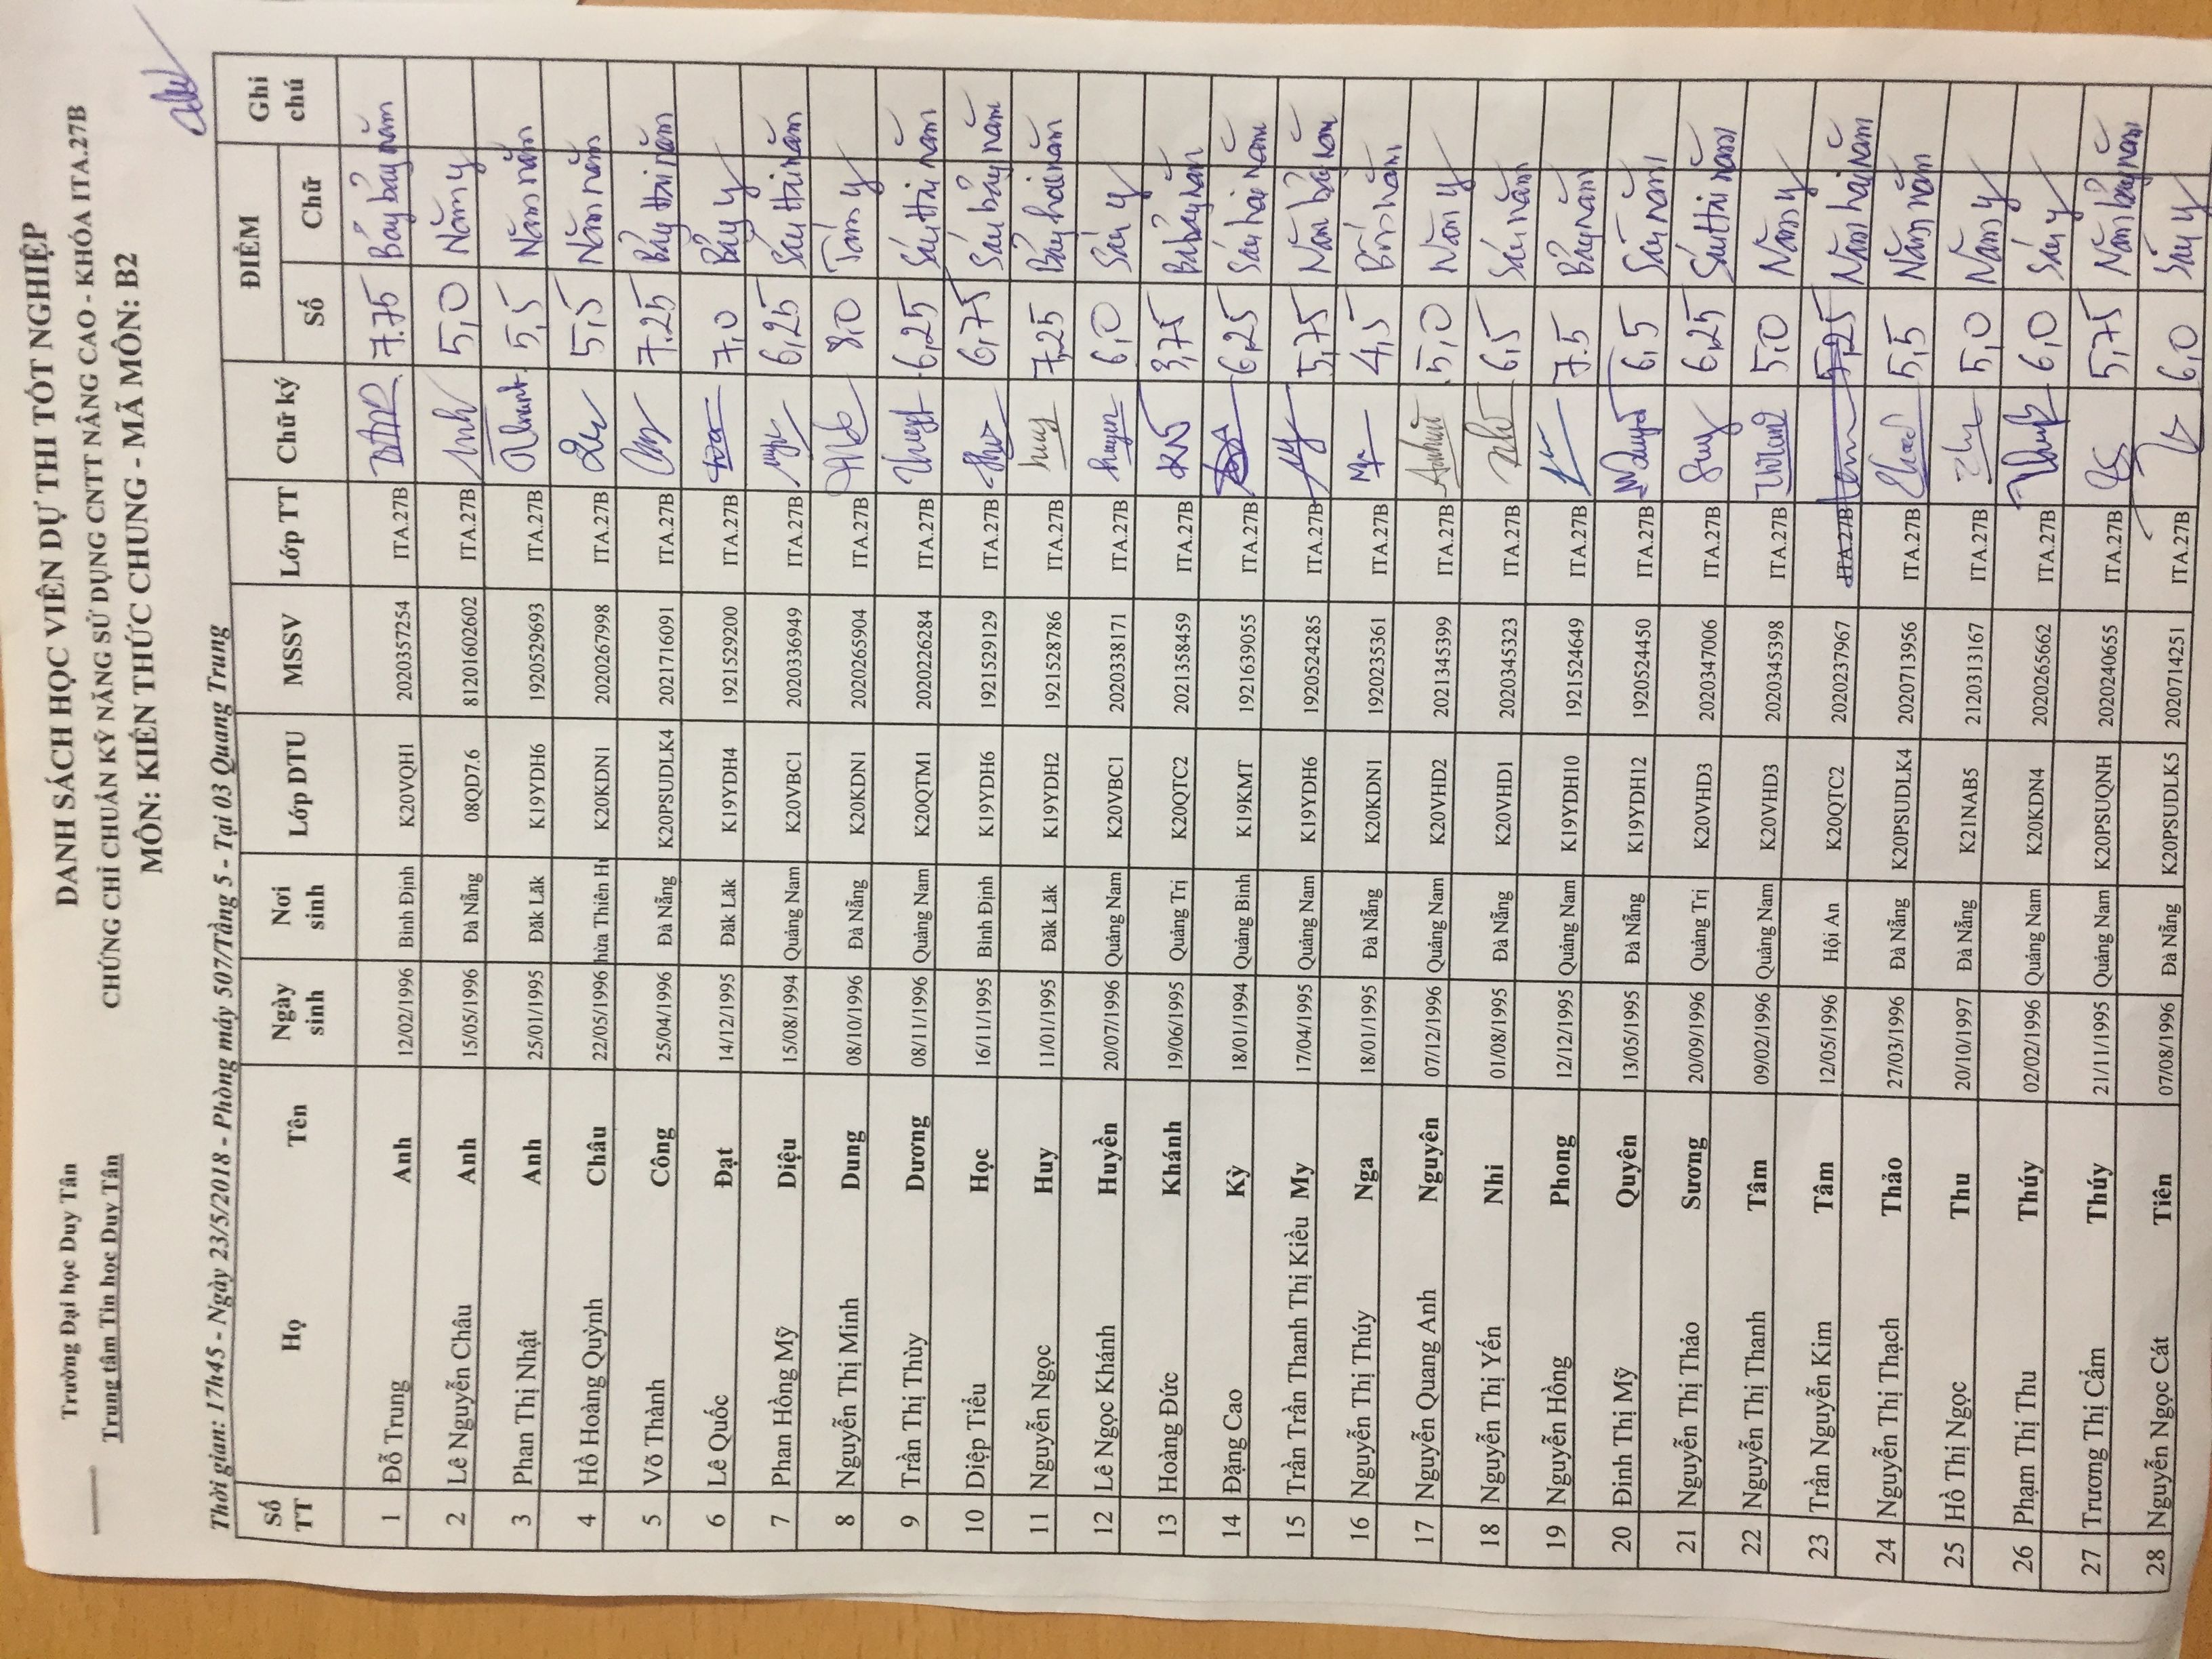 Trường Đại học Duy Tân
Trung tâm Tin học Duy Tân
DANH SÁCH HỌC VIÊN DỰ THI TÓT NGHIỆP
CHỨNG CHỈ CHUẨN KỸ NĂNG SỬ DỤNG CNTT NÂNG CAO - KHÓA ITA.27B
MÔN: KIẾN THỨC CHUNG - MÃ MÔN: B2
Thời gian: 17h45 - Ngày 23/5/2018 - Phòng máy 507/Tầng 5 - Tại 03 Quang Trung
Số TT Họ Tên Ngày sinh Nơi sinh Lớp DTU MSSV Lớp TT Chữ ký ĐIỂM Ghi chú
Số Chữ
1 Đỗ Trung Anh 12/02/1996 Bình Định K20VQH1 2020357254 ITA.27B 7.75 Bảy bảy năm
2 Lê Nguyễn Châu Anh 15/05/1996 Đà Nẵng 08QD7.6 81201602602 ITA.27B Anh 5,0 Năm y
3 Phan Thị Nhật Anh 25/01/1995 Đăk Lăk K19YDH6 1920529693 ITA.27B 5,5 Năm năm
4 Hồ Hoàng Quỳnh Châu 22/05/1996 hừa Thiên H K20KDN1 2020267998 ITA.27B 5,5 Năm năm
5 Võ Thành Công 25/04/1996 Đà Nẵng K20PSUDLK4 2021716091 ITA.27B 7.25 Bảy hai năm
6 Lê Quốc Đạt 14/12/1995 Đăk Lăk K19YDH4 1921529200 ITA.27B 7,0 Bảy y
7 Phan Hồng Mỹ Diệu 15/08/1994 Quảng Nam K20VBC1 2020336949 ITA.27B 6,25 Sáu hai năm
8 Nguyễn Thị Minh Dung 08/10/1996 Đà Nẵng K20KDN1 2020265904 ITA.27B 8,0 Tám y
9 Trần Thị Thùy Dương 08/11/1996 Quảng Nam K20QTM1 2020226284 ITA.27B 6,25 Sáu hai năm
10 Diệp Tiểu Học 16/11/1995 Bình Định K19YDH6 1921529129 ITA.27B 6,75 Sáu bảy năm
11 Nguyễn Ngọc Huy 11/01/1995 Đăk Lăk K19YDH2 1921528786 ITA.27B huy 7,25 Bảy hai năm
12 Lê Ngọc Khánh Huyền 20/07/1996 Quảng Nam K20VBC1 2020338171 ITA.27B huyen 6,0 Sáu y
13 Hoàng Đức Khánh 19/06/1995 Quảng Trị K20QTC2 2021358459 ITA.27B 3,75 Ba bảy năm
14 Đặng Cao Kỳ 18/01/1994 Quảng Bình K19KMT 1921639055 ITA.27B 6,25 Sáu hai năm
15 Trần Trần Thanh Thị Kiều My 17/04/1995 Quảng Nam K19YDH6 1920524285 ITA.27B My 5,75 Năm bảy năm
16 Nguyễn Thị Thúy Nga 18/01/1995 Đà Nẵng K20KDN1 1920235361 ITA.27B 4,5 Bốn năm
17 Nguyễn Quang Anh Nguyên 07/12/1996 Quảng Nam K20VHD2 2021345399 ITA.27B 5,0 Năm y
18 Nguyễn Thị Yến Nhi 01/08/1995 Đà Nẵng K20VHD1 2020345323 ITA.27B 6,5 Sáu năm
19 Nguyễn Hồng Phong 12/12/1995 Quảng Nam K19YDH10 1921524649 ITA.27B 7.5 Bảy năm
20 Đinh Thị Mỹ Quyên 13/05/1995 Đà Nẵng K19YDH12 1920524450 ITA.27B 6,5 Sáu năm
21 Nguyễn Thị Thảo Sương 20/09/1996 Quảng Trị K20VHD3 2020347006 ITA.27B 6,25 Sáu hai năm
22 Nguyễn Thị Thanh Tâm 09/02/1996 Quảng Nam K20VHD3 2020345398 ITA.27B 5,0 Năm y
23 Trần Nguyễn Kim Tâm 12/05/1996 Hội An K20QTC2 2020237967 ITA.27B 5,25 Năm hai năm
24 Nguyễn Thị Thạch Thảo 27/03/1996 Đà Nẵng K20PSUDLK4 2020713956 ITA.27B 5,5 Năm năm
25 Hồ Thị Ngọc Thu 20/10/1997 Đà Nẵng K21NAB5 2120313167 ITA.27B 5,0 Năm y
26 Phạm Thị Thu Thúy 02/02/1996 Quảng Nam K20KDN4 2020265662 ITA.27B 6,0 Sáu y
27 Trương Thị Cẩm Thúy 21/11/1995 Quảng Nam K20PSUQNH 2020240655 ITA.27B 5,75 Năm bảy năm
28 Nguyễn Ngọc Cát Tiên 07/08/1996 Đà Nẵng K20PSUDLK5 2020714251 ITA.27B 6,0 Sáu y